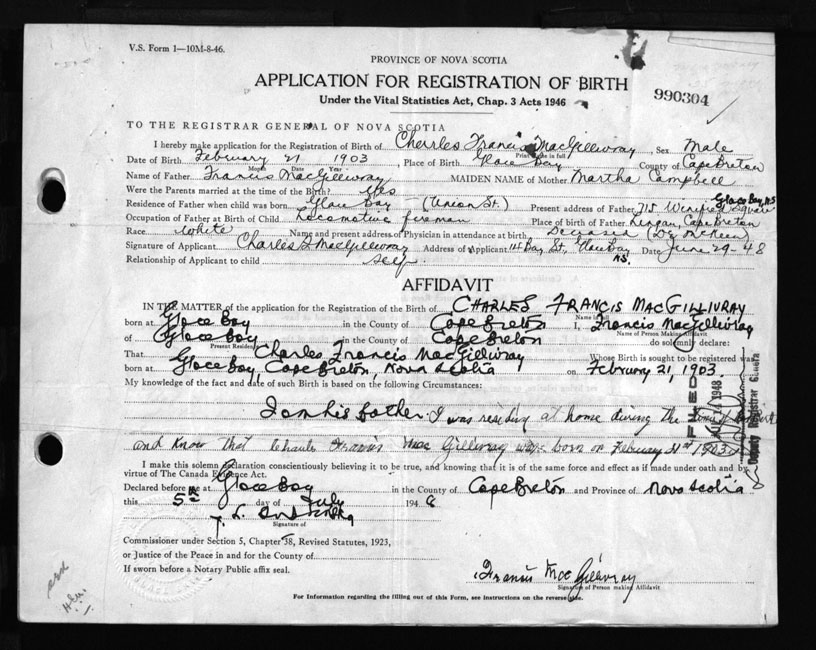 V.S. Form 1—10M-8-46.
PROVINCE OF NOVA SCOTIA
APPLICATION FOR REGISTRATION OF BIRTH
Under the Vital Statistics Act, Chap. 3 Acts 1946
990304
TO THE REGISTRAR GENERAL OF NOVA SCOTIA
I hereby make application for the Registration of Birth of Charles Francis MacGillivray, Sex Male
Print Name in full
Date of Birth February 21 1903, Place of Birth Glace Bay County of Cape Breton
Month Date Year
Name of Father Francis MacGillivray MAIDEN NAME of Mother Martha Campbell
Were the Parents married at the time of the Birth? Yes
Glace Bay, NS
Residence of Father when child was born Glace Bay – (Union St.) Present address of Father 715 Square
Occupation of Father at Birth of Child Locomotive fireman Place of birth of Father Lingan, Cape Breton
Race White Name and present address of Physician in attendance at birth Deceased (Dr. McKeen)
Signature of Applicant Charles F MacGillivray Address of Applicant Bay St, Glace Bay NS Date June 29-48
Relationship of Applicant to child self
AFFIDAVIT
IN THE MATTER of the application for the Registration of Birth of CHARLES FRANCIS MACGILLIVRAY
Name in full
born at Glace Bay in the County of Cape Breton I, Francis MacGillivray
Name of Person Making Affidavit
of Glace Bay in the County of Cape Breton do solemnly declare:
Present Residence
That Charles Francis MacGillivray Whose Birth is sought to be registered was
born at Glace Bay, Cape Breton, Nova Scotia on February 21, 1903.
My knowledge of the fact and date of such Birth is based on the following Circumstances:
I am his father. I was residing at home during the time of
and know that Charles Francis MacGillivray was born on February 21st 1903
FILED
1948
Deputy Registrar General
I make this solemn declaration conscientiously believing it to be true, and knowing that it is of the same force and effect as if made under oath and by
virtue of The Canada Evidence Act.
Declared before me at Glace Bay in the County of Cape Breton and Province of Nova Scotia
this 5th day of July 1948
Signature of
Commissioner under Section 5, Chapter 38, Revised Statutes, 1923,
or Justice of the Peace in and for the County of
If sworn before a Notary Public affix seal.
Francis MacGillivray
Signature of Person making Affidavit
For Information regarding the filling out of this Form, see instructions on the reverse side.